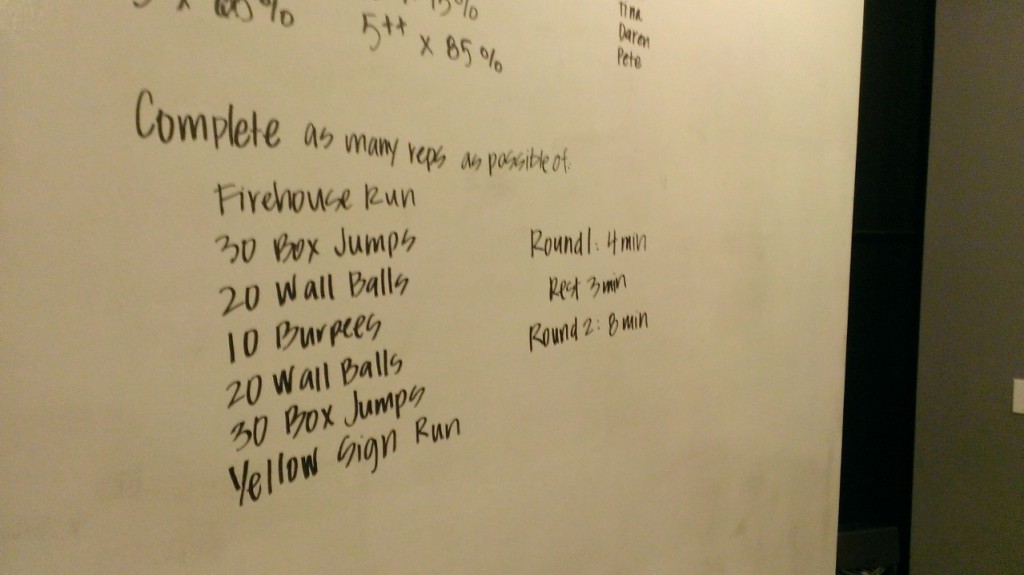 5++ x 85%
Tina
Daren
Pete
Complete as many reps as possible of:
Firehouse Run
30 Box Jumps
20 Wall Balls
10 Burpees
20 Wall Balls
30 Box Jumps
Yellow Sign Run
Round 1: 4 min
Rest 3 min
Round 2: 8 min